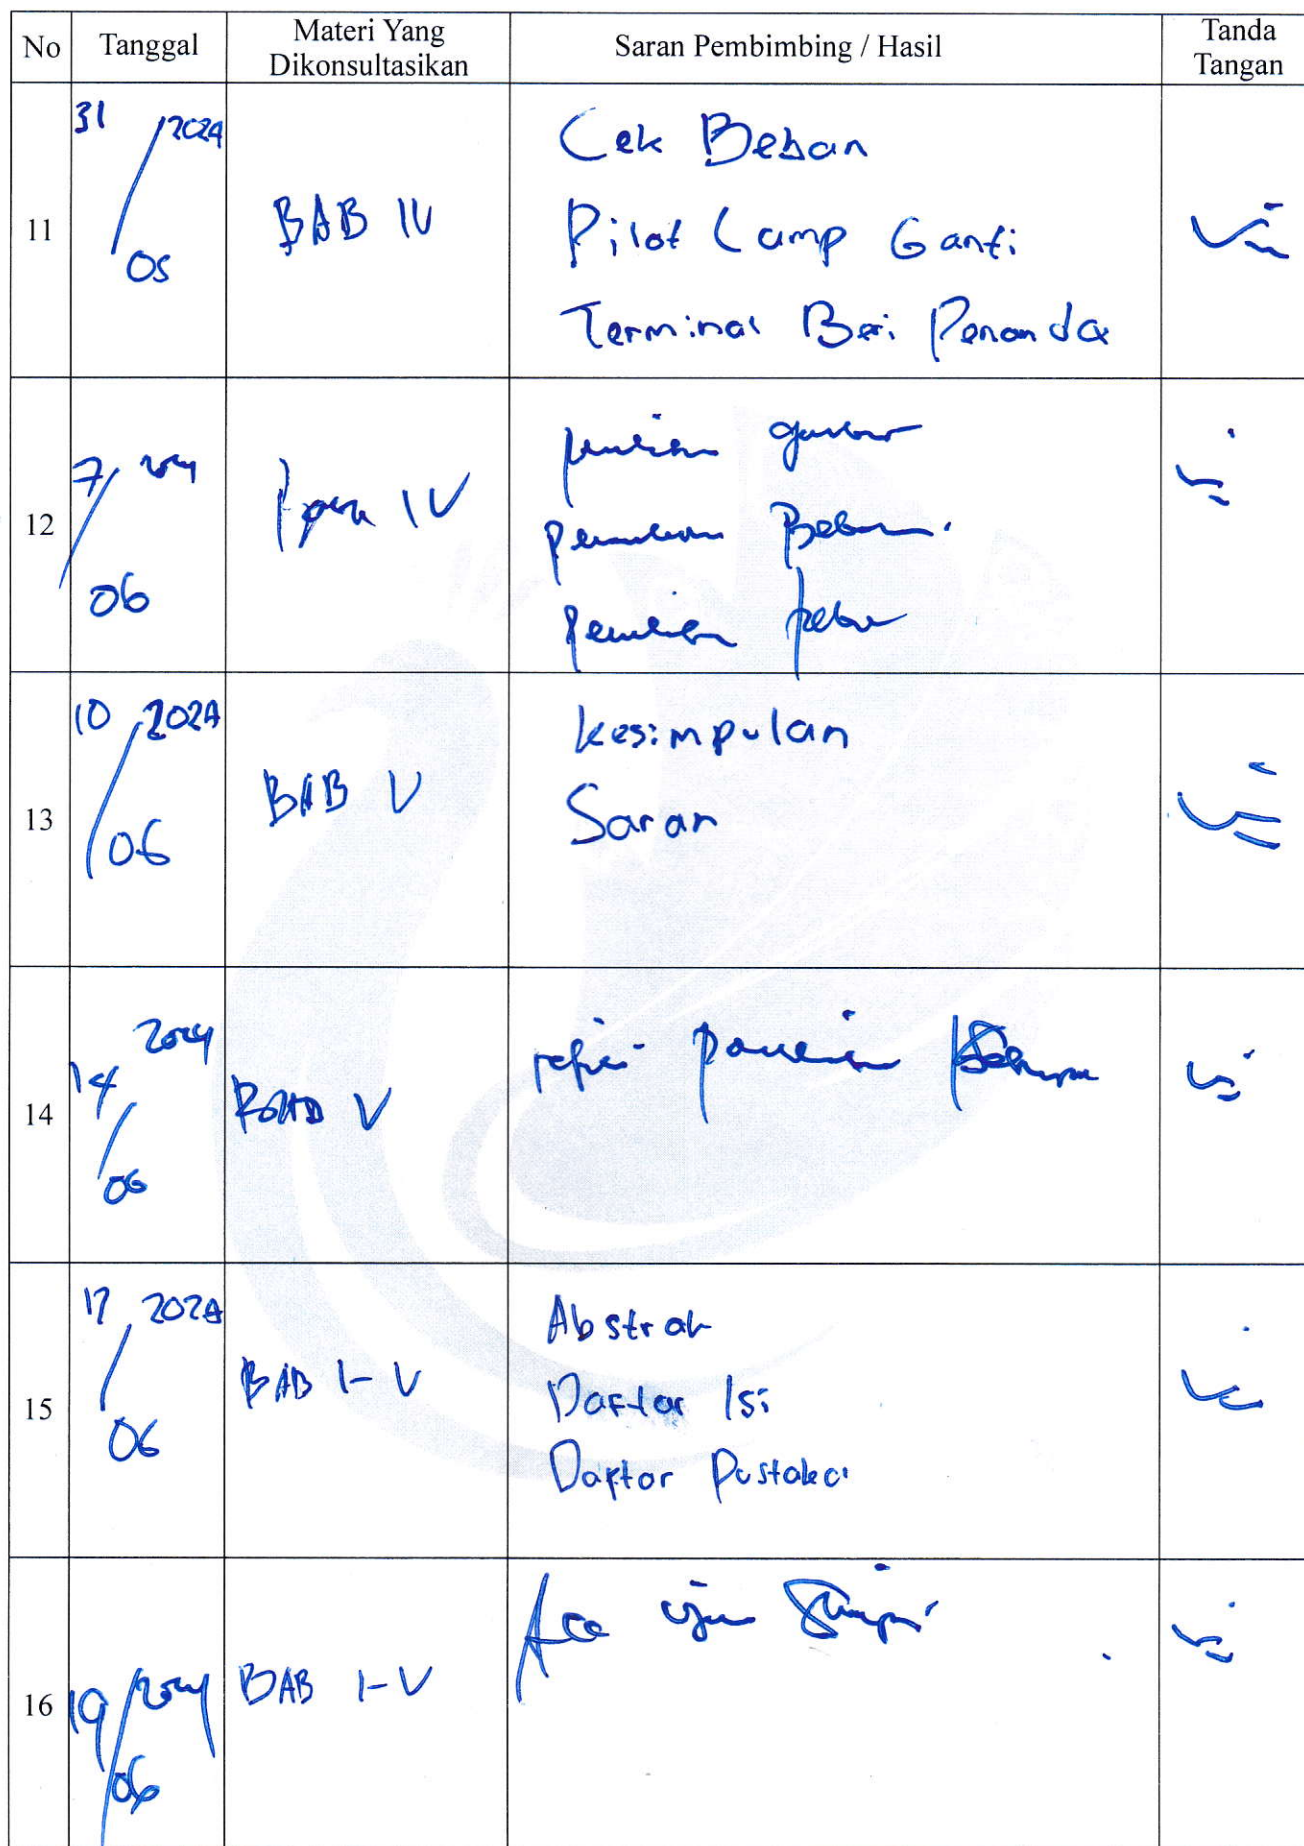 No Tanggal Materi Yang Dikonsultasikan Saran Pembimbing / Hasil Tanda Tangan
11 31/05 2024 BAB IV Cek Beban
Pilot Lamp Ganti
Terminal Beri Penanda
12 7/06 2024 IV gambar
Beban
13 10/06 2024 BAB V Kesimpulan
Saran
14 14/06 2024 BAB V
15 17/06 2024 BAB I-V Abstrak
Daftar Isi
Daftar Pustaka
16 19/06 2024 BAB I-V Acc ujian Skripsi